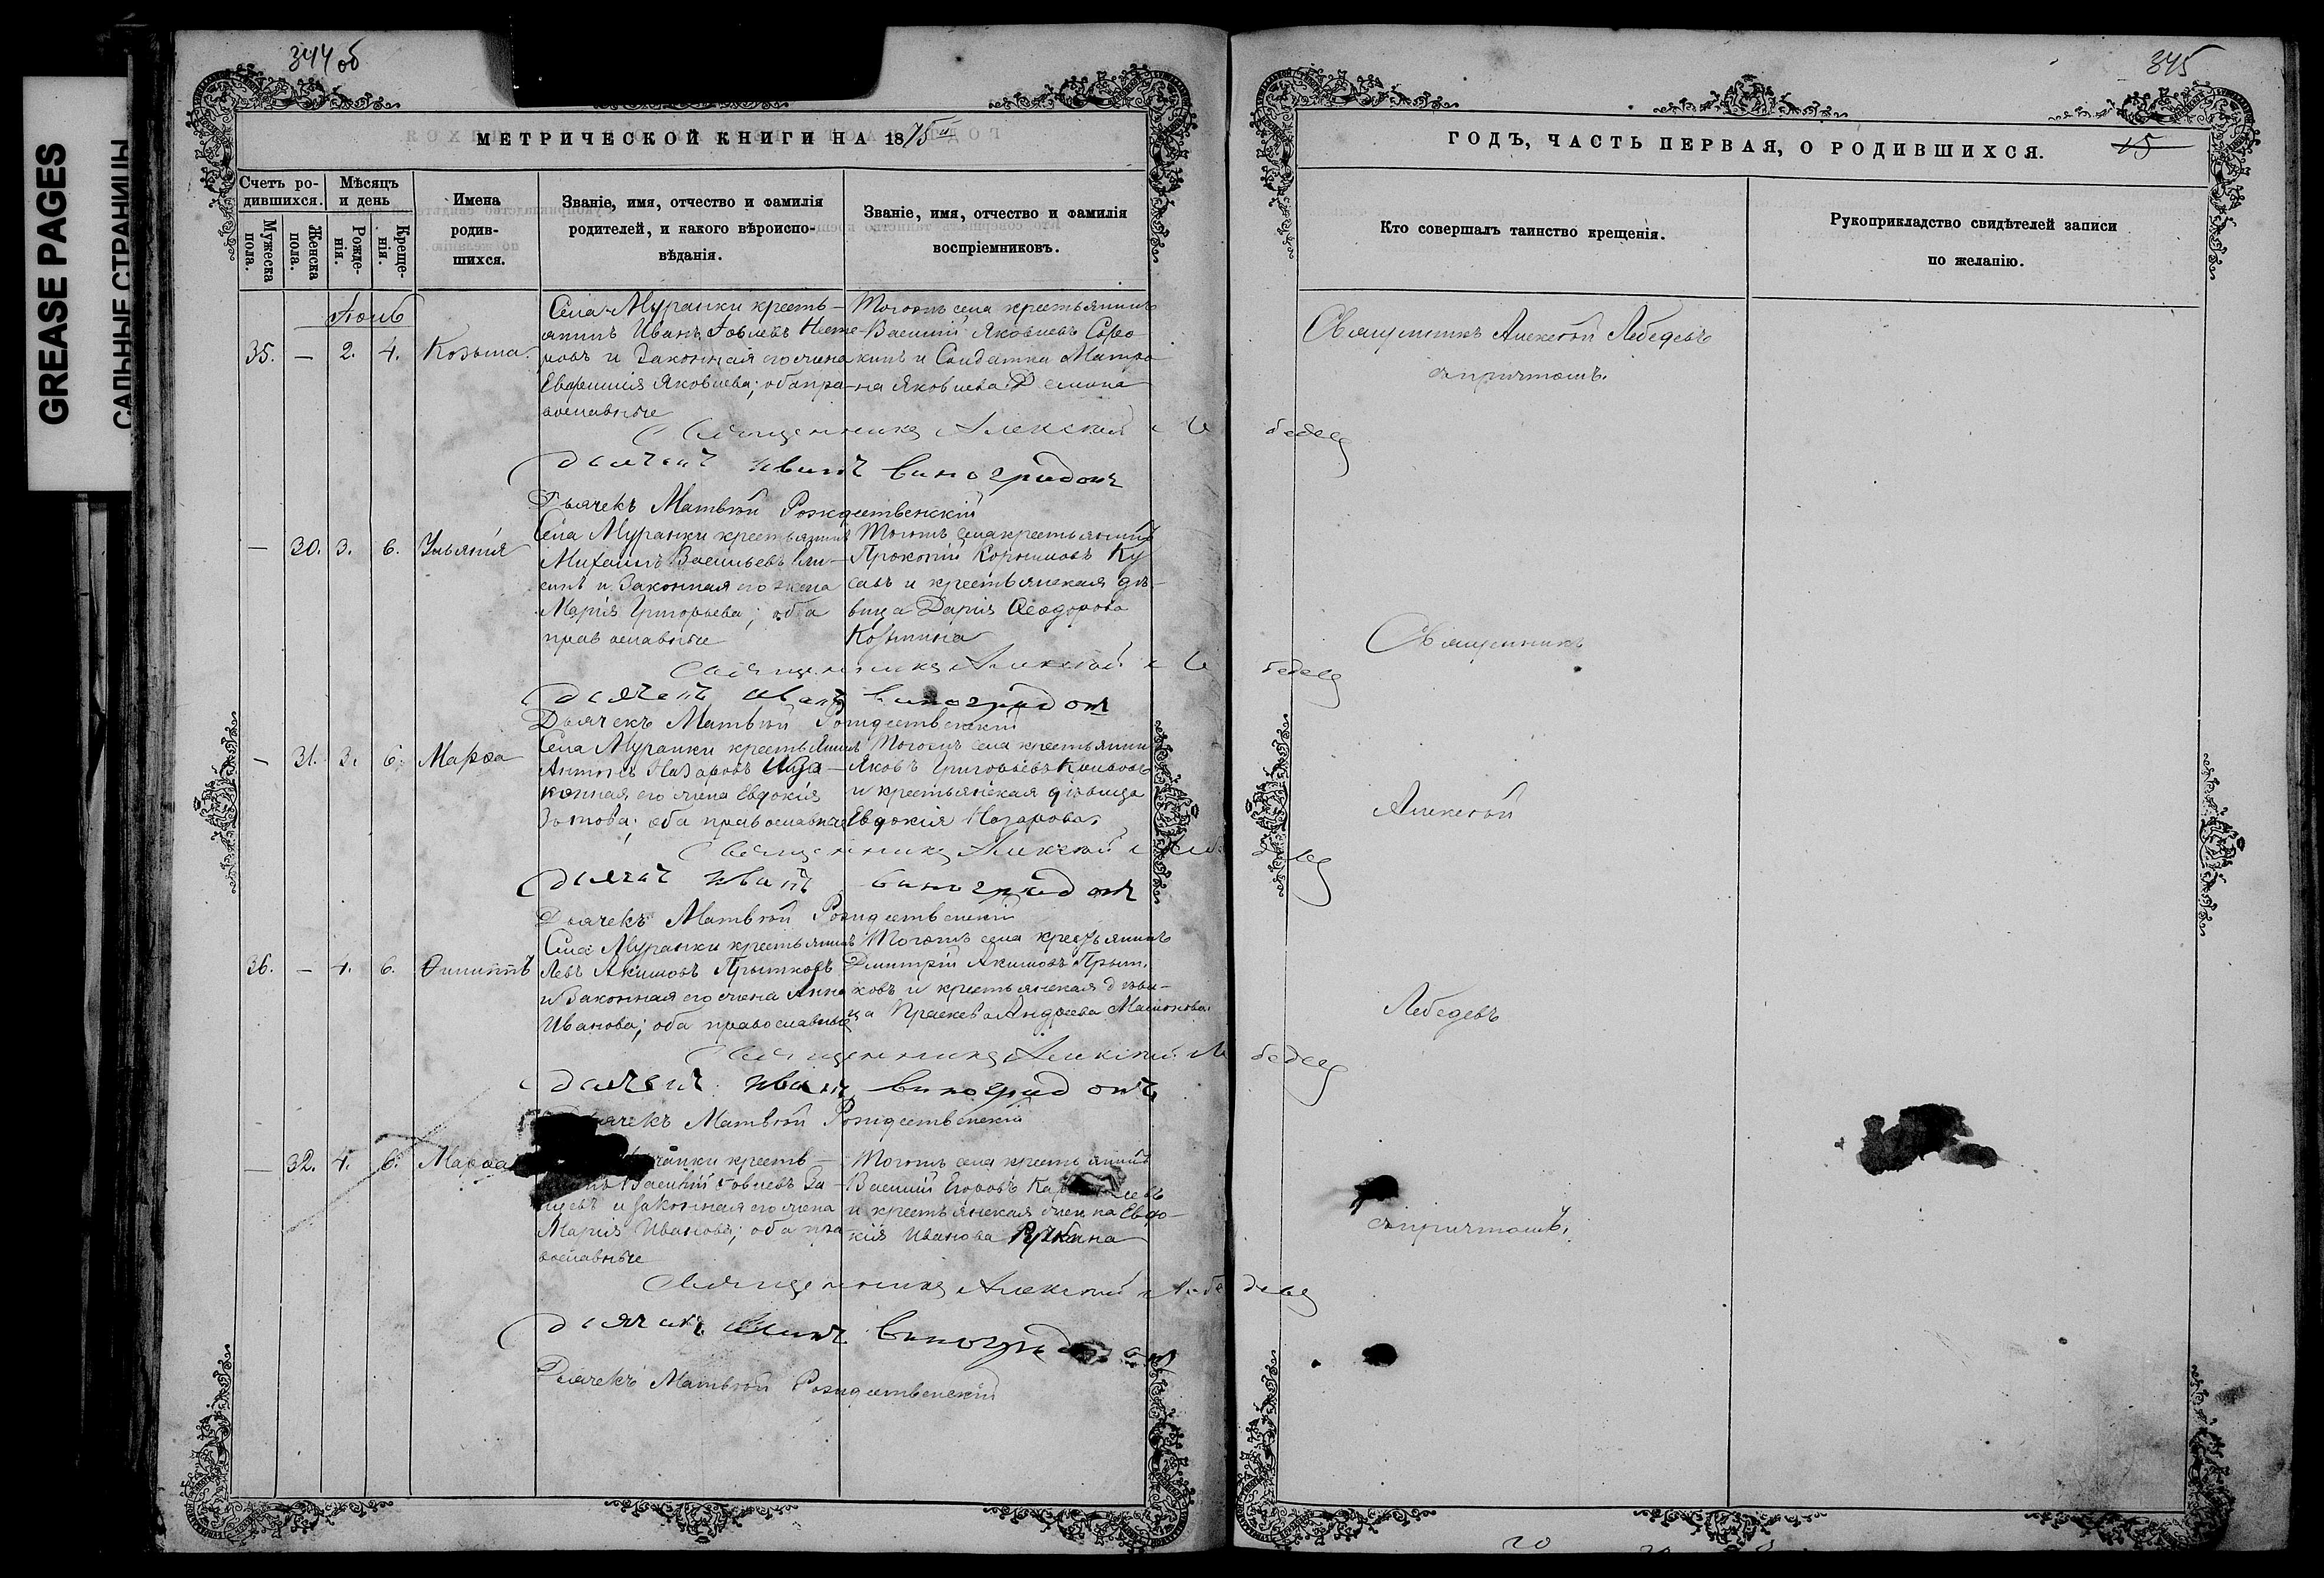 GREASE PAGES
САЛЬНЫЕ СТРАНИЦЫ
344 об
МЕТРИЧЕСКОЙ КНИГИ НА 1875
Счетъ ро-
дившихся.
Мужеска
пола.
Женска
пола.
Мѣсяцъ
и день
Рожде-
нія.
Креще-
нія.
Имена
родив-
шихся.
Званіе, имя, отчество и фамилія
родителей, и какого вѣроиспо-
вѣданія.
Званіе, имя, отчество и фамилія
воспріемниковъ.
35. — 2. 4. Козьма.
Села Муранки кресть-
янинъ Иванъ Іовлевъ
и законная его жена
Евфимія Яковлева; оба пра-
вославные
Тогожъ села крестьянинъ
Василій Яковлевъ
и Солдатка Матро-
на Яковлева
Священникъ Алексѣй Лебедевъ
дьячекъ Иванъ Виноградовъ
Дьячекъ Матвѣй Рождественскій
— 30. 3. 6. Ульянія
Села Муранки крестьянинъ
Михаилъ Васильевъ
и законная его жена
Марія Григорьева; оба
православные
Тогожъ села крестьянинъ
Прокопій
и крестьянская дѣ-
вица Дарія Ѳеодорова
Козьмина
Священникъ Алексѣй Лебедевъ
дьячекъ Иванъ Виноградовъ
Дьячекъ Матвѣй Рождественскій
— 31. 3. 6. Марѳа
Села Муранки крестьянинъ
Антонъ Назаровъ и за-
конная его жена Евдокія
Зотова; оба православные
Тогожъ села крестьянинъ
Яковъ Григорьевъ
и крестьянская дѣвица
Евдокія Назарова
Священникъ Алексѣй Лебедевъ
дьячекъ Иванъ Виноградовъ
Дьячекъ Матвѣй Рождественскій
36. — 4. 6. Филиппъ
Села Муранки крестьянинъ
Левъ Акимовъ Прытковъ
и законная его жена Анна
Иванова; оба православные
Тогожъ села крестьянинъ
Дмитрій Акимовъ Прыт-
ковъ и крестьянская дѣви-
ца Праскева Андреева
Священникъ Алексѣй Лебедевъ
дьячекъ Иванъ Виноградовъ
Дьячекъ Матвѣй Рождественскій
— 32. 4. 6. Марѳа
Муранки кресть-
Василій Іовлевъ За-
и законная его жена
Марія Иванова; оба пра-
вославные
Тогожъ села крестьянинъ
Василій Егоровъ
и крестьянская женка Евдо-
кія Иванова
Священникъ Алексѣй Лебедевъ
дьячекъ Иванъ Виноградовъ
Дьячекъ Матвѣй Рождественскій
345
ГОДЪ, ЧАСТЬ ПЕРВАЯ, О РОДИВШИХСЯ.
15
Кто совершалъ таинство крещенія.
Рукоприкладство свидѣтелей записи
по желанію.
Священникъ Алексѣй Лебедевъ
съ причтомъ.
Священникъ
Алексѣй
Лебедевъ
съ причтомъ.